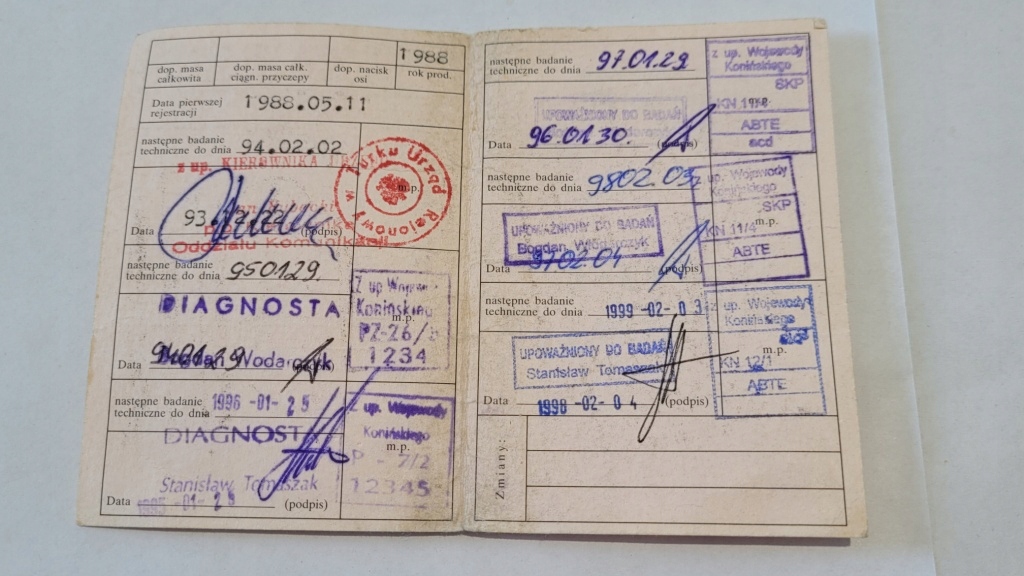 1988
dop. masa całkowita
dop. masa całk. ciągn. przyczepy
dop. nacisk osi
rok prod.
Data pierwszej rejestracji 1988.05.11
następne badanie
techniczne do dnia 94.02.02
z up. KIEROWNIKA
Urząd Rejonowy w
m.p.
93.
Data (podpis)
Oddziału Komunikacji
następne badanie
techniczne do dnia 950129.
DIAGNOSTA
Z up Wojewo
Konińskiego
m.p.
PZ-26/
1234
Data 940129 Bogdan Włodarczyk
następne badanie
techniczne do dnia 1996-01-25
DIAGNOSTA
Z up. Wojewody
Konińskiego
m.p.
P - 7/2
12345
Stanisław Tomaszak
Data 1995-01-25 (podpis)
następne badanie
techniczne do dnia 97.01.29
z up. Wojewody
Konińskiego
SKP
KN
ABTE
UPOWAŻNIONY DO BADAŃ
Data 96.01.30. (podpis)
następne badanie
techniczne do dnia 9802.03
z up. Wojewody
Konińskiego
SKP
m.p.
KN 11/4
ABTE
UPOWAŻNIONY DO BADAŃ
Bogdan Włodarczyk
Data 9702.04 (podpis)
następne badanie
techniczne do dnia 1999-02-03
z up. Wojewody
Konińskiego
m.p.
KN 12/1
ABTE
UPOWAŻNIONY DO BADAŃ
Stanisław Tomaszak
Data 1998-02-04 (podpis)
Zmiany: